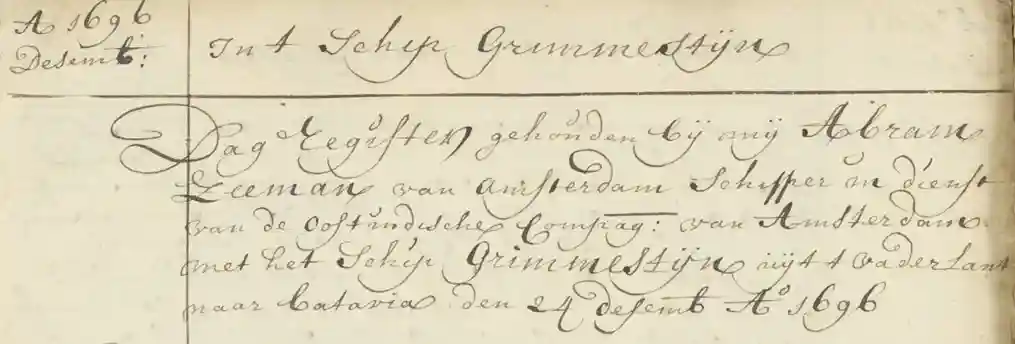 A 1696
Desemb:
In t Schip Grimmestijn
Dag Register gehouden bij mij Abram
Zeeman van Amsterdam Schipper in dienst
van de oostindische Compag: van Amsterdam
met het Schip Grimmestijn uijt t vaderlant
naar batavia den 24 desemb Ao 1696